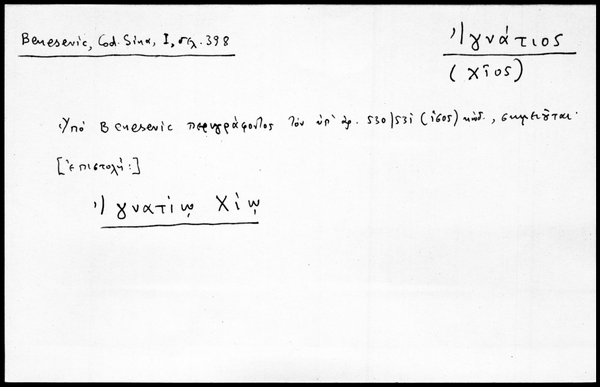 Benesevic, Cod. Sina, I, σελ. 398
Ἰγνάτιος
(Χῖος)
Ὑπὸ Benesevic περιγράφοντος τὸν ὑπ' ἀρ. 530/531 (1505) κώδ., σημειοῦται·
[ἐπιστολή:]
Ἰγνατίῳ Χίῳ